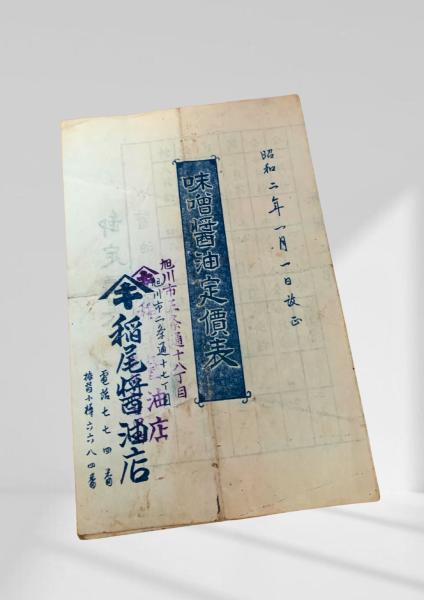 昭和二年一月一日改正
味噌醤油定價表
旭川市五条通十八丁目
油店
旭川市二条通十七丁
稲尾醤油店
電話七七四番
振替小樽六六八四番